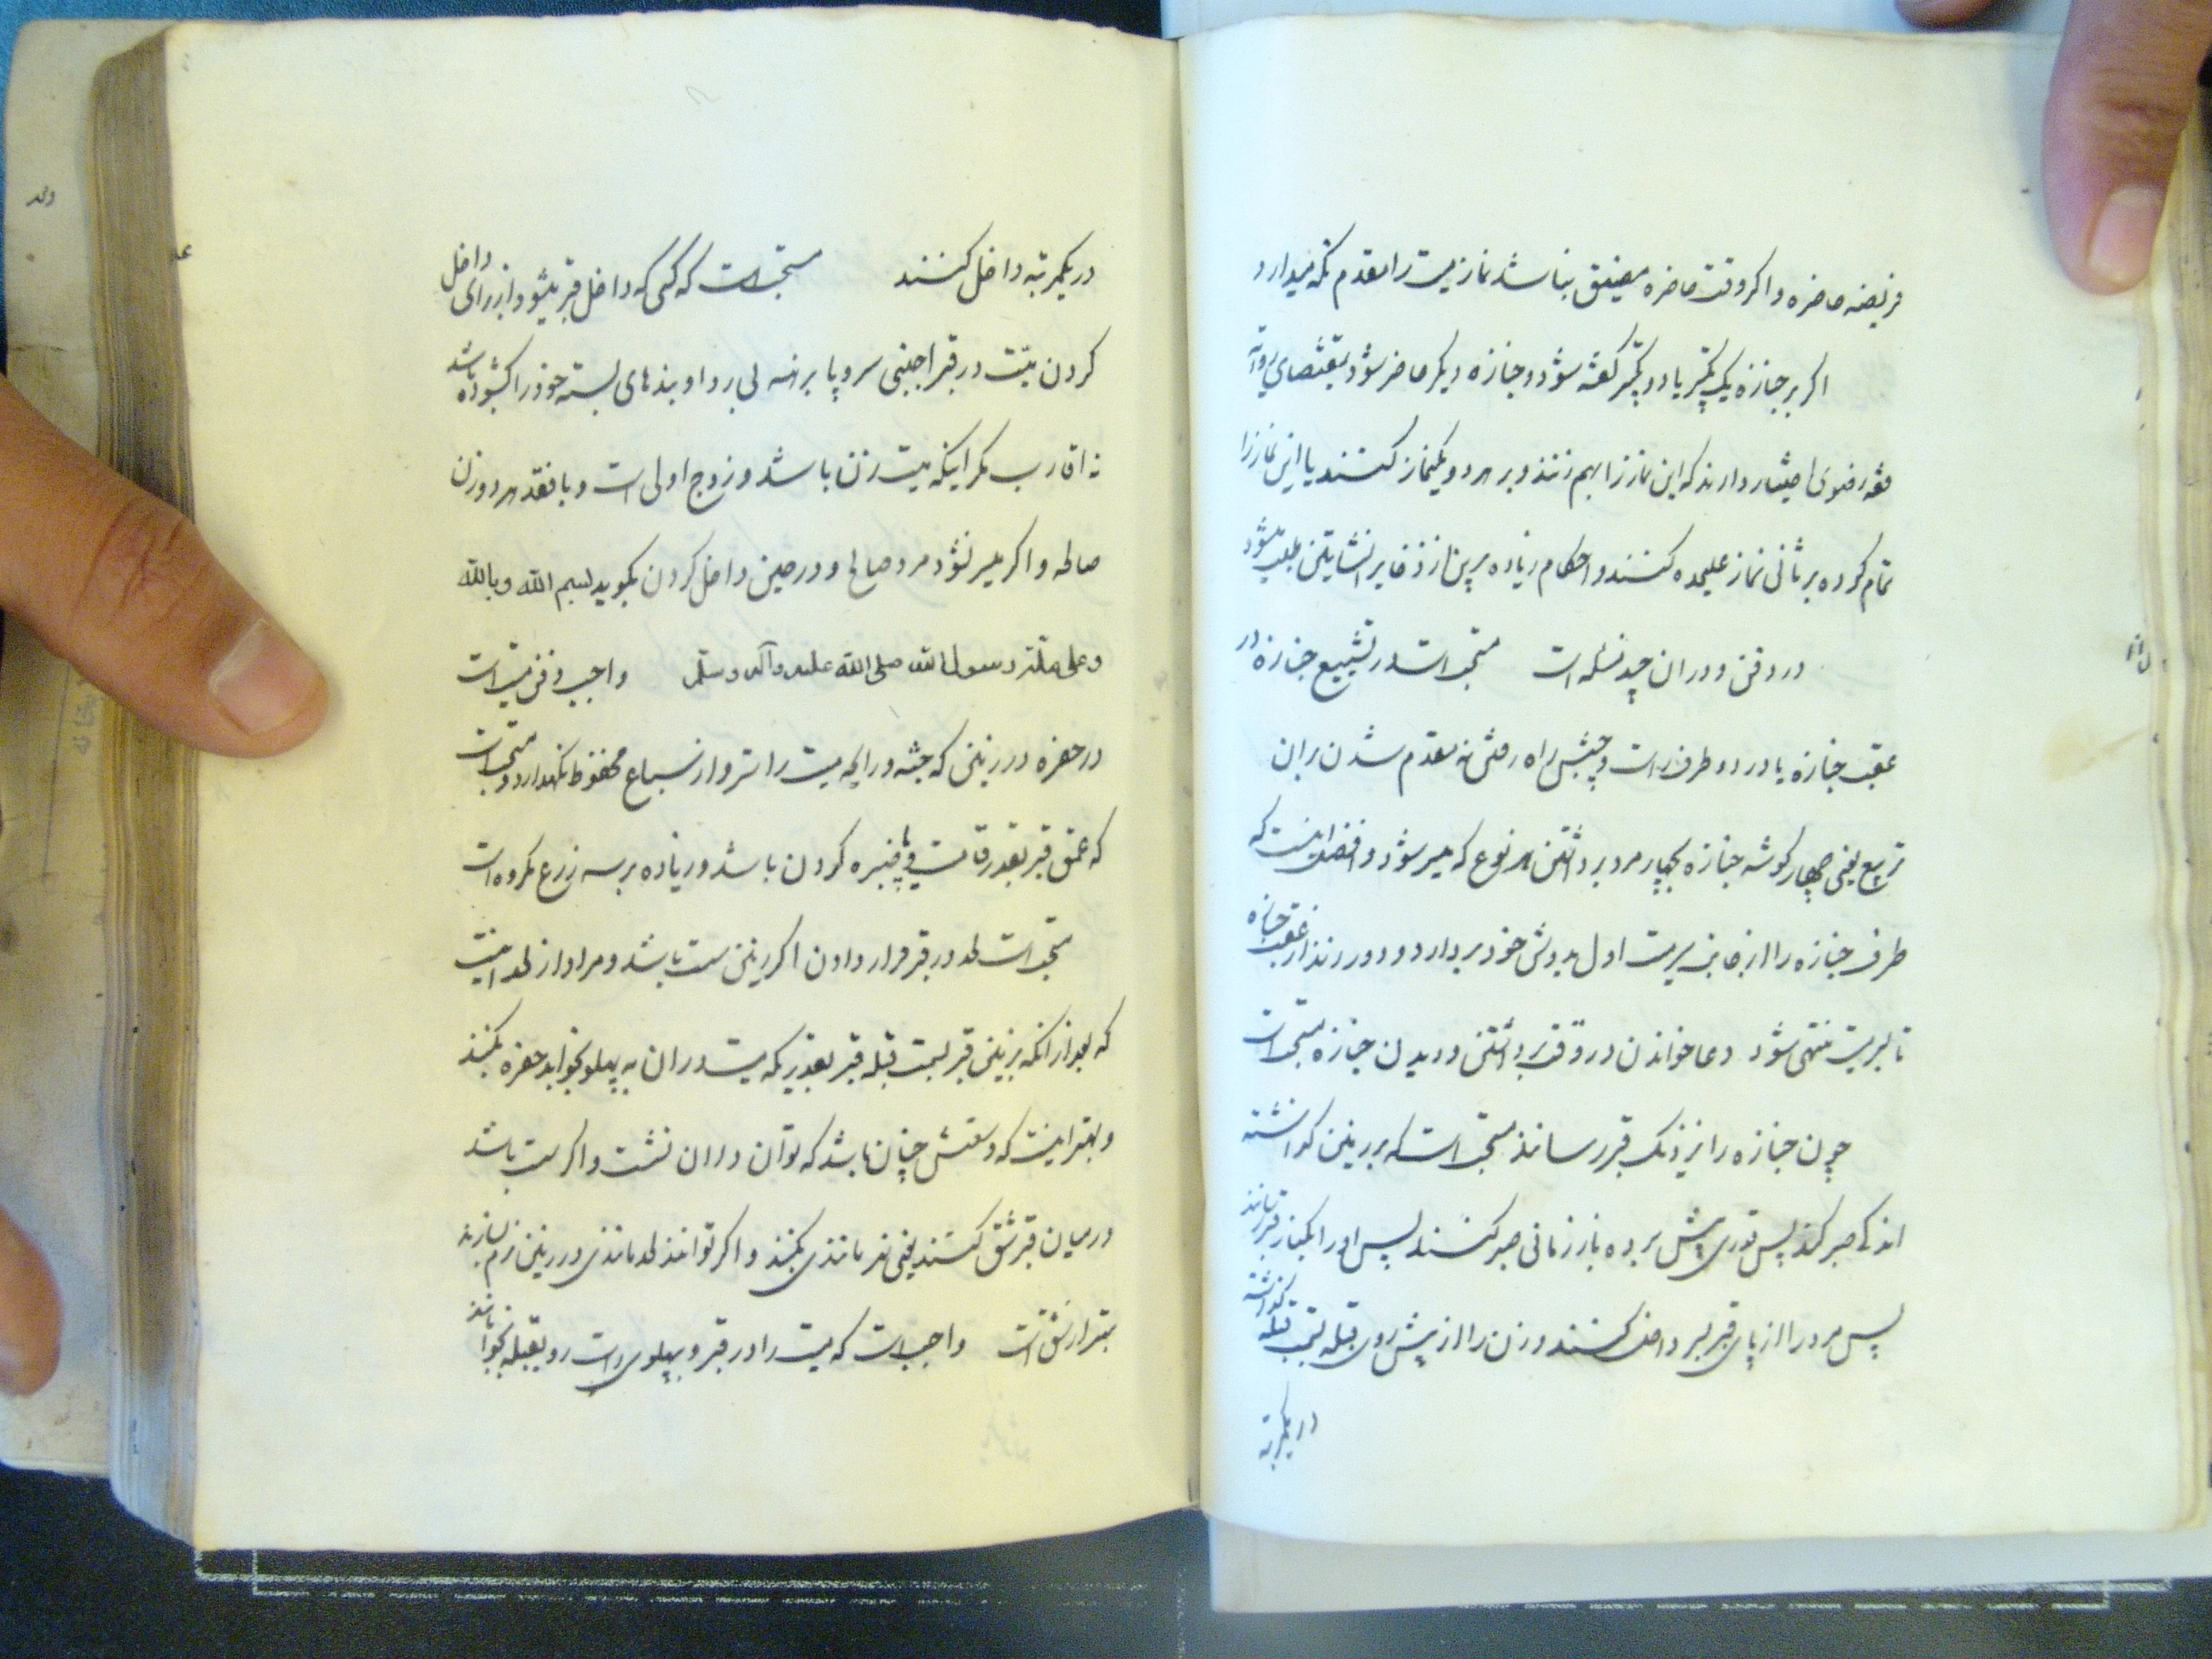 فریضه حاضره و اکر وقت حاضره مضیق نباشد نماز میت را مقدم نکه میدارد
اکر بر جنازه یک تکبیر یا دو تکبیر کفته شود و جنازه دیکر حاضر شود بمقتضای روایة
فقه رضوی اختیار دارند که این نماز را بهم زنند و بر هر دو یکنماز کنند یا این نماز را
تمام کرده بر ثانی نماز علیحده کنند و احکام زیاده برین از ذخایر انشایتین طلب میشود
در دفن و در ان چند مسئله است مستحب است در تشییع جنازه در
عقب جنازه یا در دو طرف راست و چپش راه رفتن نه مقدم شدن بران
تربیع یعنی چهار کوشه جنازه بچهار مرد برداشتن هر نوع که میسر شود و افضل اینست که
طرف جنازه را از جانب سر میت اول بدوش خود بردارد و دور زند از عقب جنازه
تا بسر میت منتهی شود دعا خواندن در وقت برداشتن و دیدن جنازه مستحب است
چون جنازه را نزدیک قبر رسانند مستحب است که بر زمین کذاشته
اندکی صبر کنند پس قدری پیش برده باز زمانی صبر کنند پس او را بکنار قبر رسانند
پس مرد را از پای قبر بسر داخل کنند و زن را از پیش روی قبله بجنب قبله کذاشته
در یکمرتبه
در یکمرتبه داخل کنند مستحب است که کسی که داخل قبر میشود از برای داخل
کردن میت در قبر اجنبی سر و پا برهنه بی ردا و بندهای بسته خود را کشوده باشد
نه اقارب مکر اینکه میت زن باشد و زوج اولی است و با فقد هر دو زن
صالحه و اکر میسر نشود مرد صالح و در حین داخل کردن بکوید بسم الله وبالله
وعلی ملة رسول الله صلی الله علیه وآله وسلم واجب دفن میت است
در حفره در زمینی که جثه و رایحه میت را ستر و از سباع محفوظ نکهدارد و مستحب است
که عمق قبر بقدر قامت و تا چنبره کردن باشد و زیاده بر سه زرع مکروه است
مستحب است لحد در قبر قرار دادن اکر زمین سست نباشد و مراد از لحد اینست
که بعد از انکه بزمینی قبر بسمت قبله قبر بقدریکه میت در ان به پهلو بخوابد حفره بکنند
و بهتر اینست که وسعتش چنان باشد که توان در ان نشست و اکر سست باشد
در میان قبر شق کنند یعنی نهر مانندی بکنند و اکر توانند لحد مانندی در زمین نرم بسازند
بهتر از شق است واجب است که میت را در قبر و بپهلوی راست رو بقبله بخوابانند